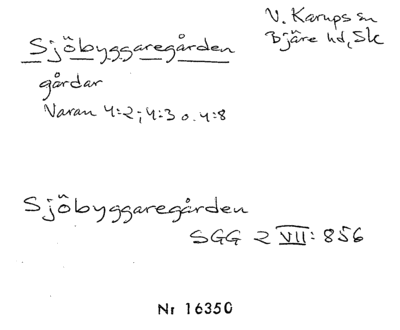 V. Karups sn
Bjäre hd, Sk
Sjöbyggaregården
gårdar
Varan 4:2; 4:3 o. 4:8
Sjöbyggaregården
SGG 2 VII: 856
Nr 16350